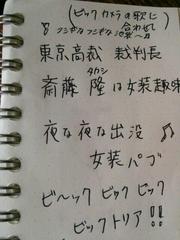 (ビックカメラの歌に
合わせて
♪ フシギなフシギな池袋〜♪
東京高裁 裁判長
タカシ
斎藤 隆は女装趣味
夜な夜な出没 ♪
女装パブ
ビ〜ック ビック ビック
ビックトリア!!